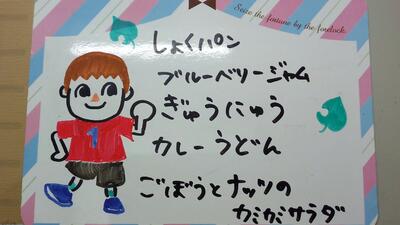 Seize the fortune by the forelock.
しょくパン
ブルーベリージャム
ぎゅうにゅう
カレーうどん
ごぼうとナッツの
カミカミサラダ
1